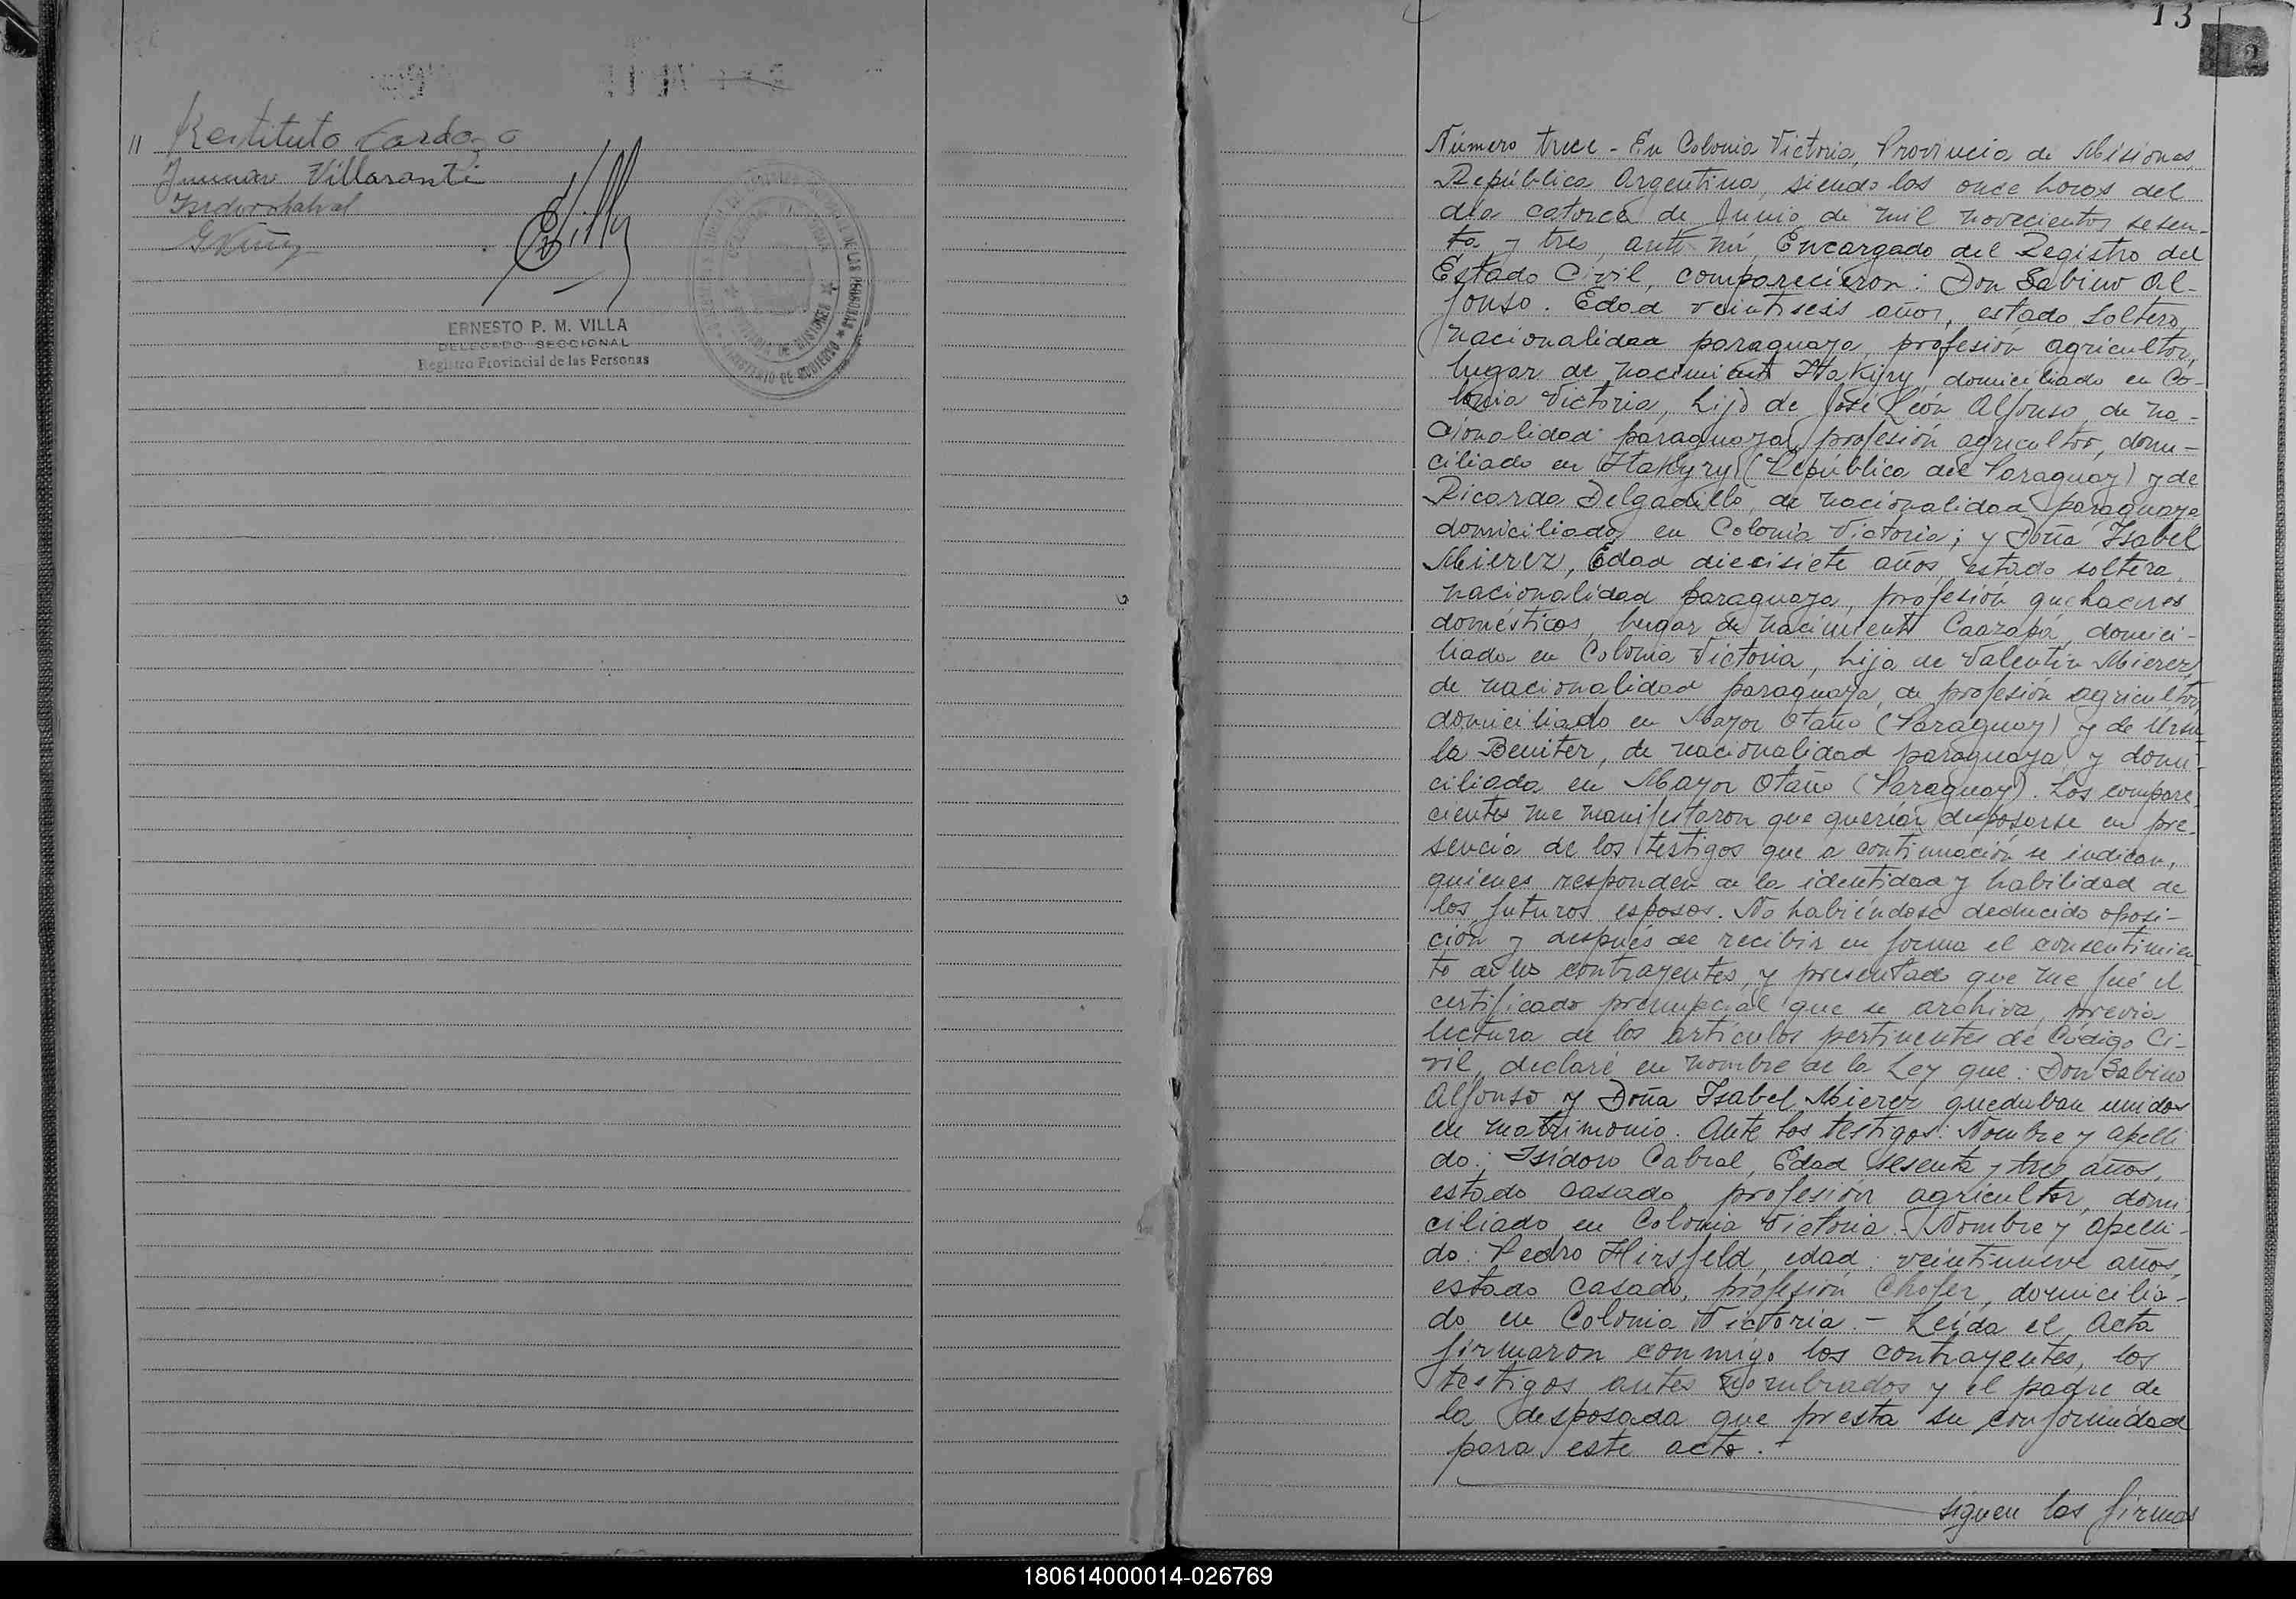 11 Restituto Cardozo
Villasanti
Isidoro Cabral
ERNESTO P. M. VILLA
DELEGADO SECCIONAL
Registro Provincial de las Personas
13
2
Número trece - En Colonia Victoria, Provincia de Misiones,
República Argentina, siendo las once horas del
día catorce de Junio de mil novecientos sesen-
ta y tres, ante mí, Encargado del Registro del
Estado Civil, comparecieron: Don Sabino Al-
fonso. Edad veintiseis años, estado soltero,
nacionalidad paraguaya, profesión agricultor,
lugar de nacimiento Itakyry, domiciliado en Co-
lonia Victoria, hijo de José León Alfonso, de na-
cionalidad paraguaya, profesión agricultor, domi-
ciliado en Itakyry (República del Paraguay) y de
Ricarda Delgadillo, de nacionalidad paraguaya
domiciliada en Colonia Victoria; y Doña Isabel
Mierez, Edad diecisiete años, estado soltera,
nacionalidad paraguaya, profesión quehaceres
domésticos, lugar de nacimiento Caazapá, domici-
liada en Colonia Victoria, hija de Valentín Mierez,
de nacionalidad paraguaya, de profesión agricultor,
domiciliado en Mayor Otaño (Paraguay) y de Ursu-
la Benitez, de nacionalidad paraguaya y domi-
ciliada en Mayor Otaño (Paraguay). Los compare-
cientes me manifestaron que querían desposarse en pre-
sencia de los testigos que a continuación se indican,
quienes responden de la identidad y habilidad de
los futuros esposos. No habiéndose deducido oposi-
ción y después de recibir en forma el consentimien-
to de los contrayentes, y presentado que me fué el
certificado prenupcial que se archiva, previa
lectura de los artículos pertinentes de Código Ci-
vil, declaré en nombre de la Ley que: Don Sabino
Alfonso y Doña Isabel Mierez quedaban unidos
en matrimonio. Ante los testigos: Nombre y apelli-
do: Isidoro Cabral, Edad sesenta y tres años,
estado casado, profesión agricultor, domi-
ciliado en Colonia Victoria. Nombre y apelli-
do: Pedro Hirsfeld, edad veintinueve años,
estado casado, profesión Chofer, domicilia-
do en Colonia Victoria. - Leída el Acta
firmaron conmigo los contrayentes, los
testigos antes nombrados y el padre de
la desposada que presta su conformidad
para este acto. -
siguen las firmas
180614000014-026769